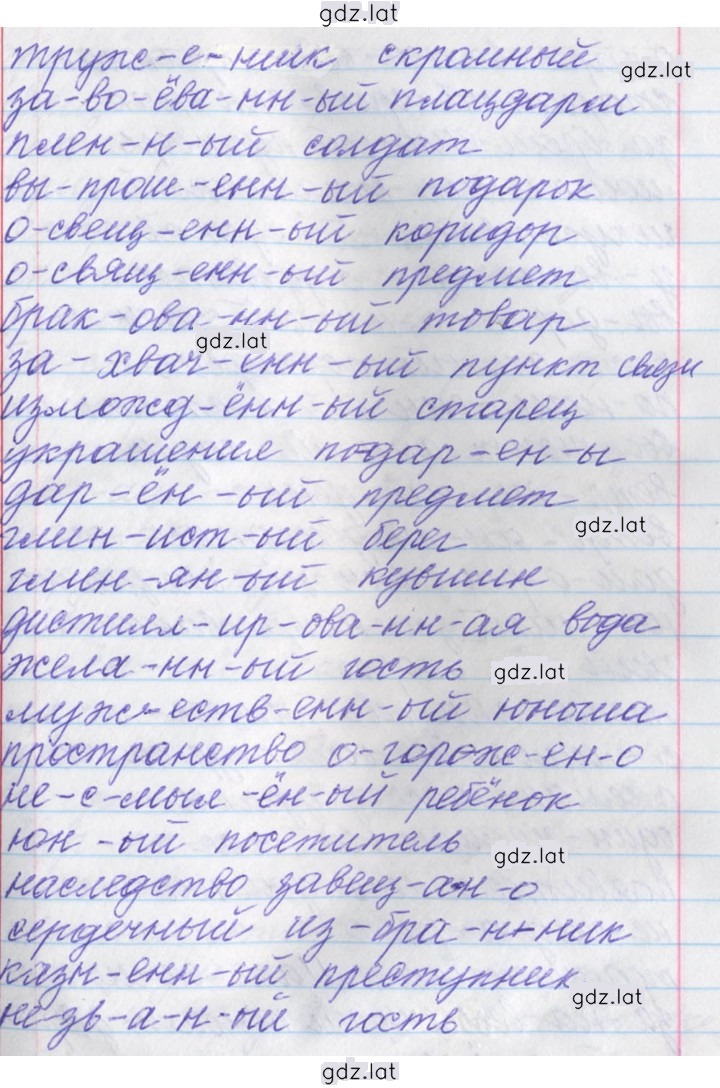 gdz.lat
труж-е-ник скромный
gdz.lat
за-во-ёва-нн-ый плацдарм
плен-н-ый солдат
вы-прош-енн-ый подарок
о-свещ-енн-ый коридор
о-свящ-енн-ый предмет
брак-ова-нн-ый товар
gdz.lat
за-хвач-енн-ый пункт связи
изможд-ённ-ый старец
украшения по-дар-ен-ы
дар-ён-ый предмет
gdz.lat
глин-ист-ый берег
глин-ян-ый кувшин
дистилл-ир-ова-нн-ая вода
жела-нн-ый гость
gdz.lat
муж-еств-енн-ый юноша
пространство о-горож-ен-о
не-с-мыл-ён-ый ребёнок
юн-ый посетитель
gdz.lat
наследство завещ-а-н-о
сердечный из-бра-н-ник
казн-енн-ый преступник
gdz.lat
не-зв-а-н-ый гость
gdz.lat